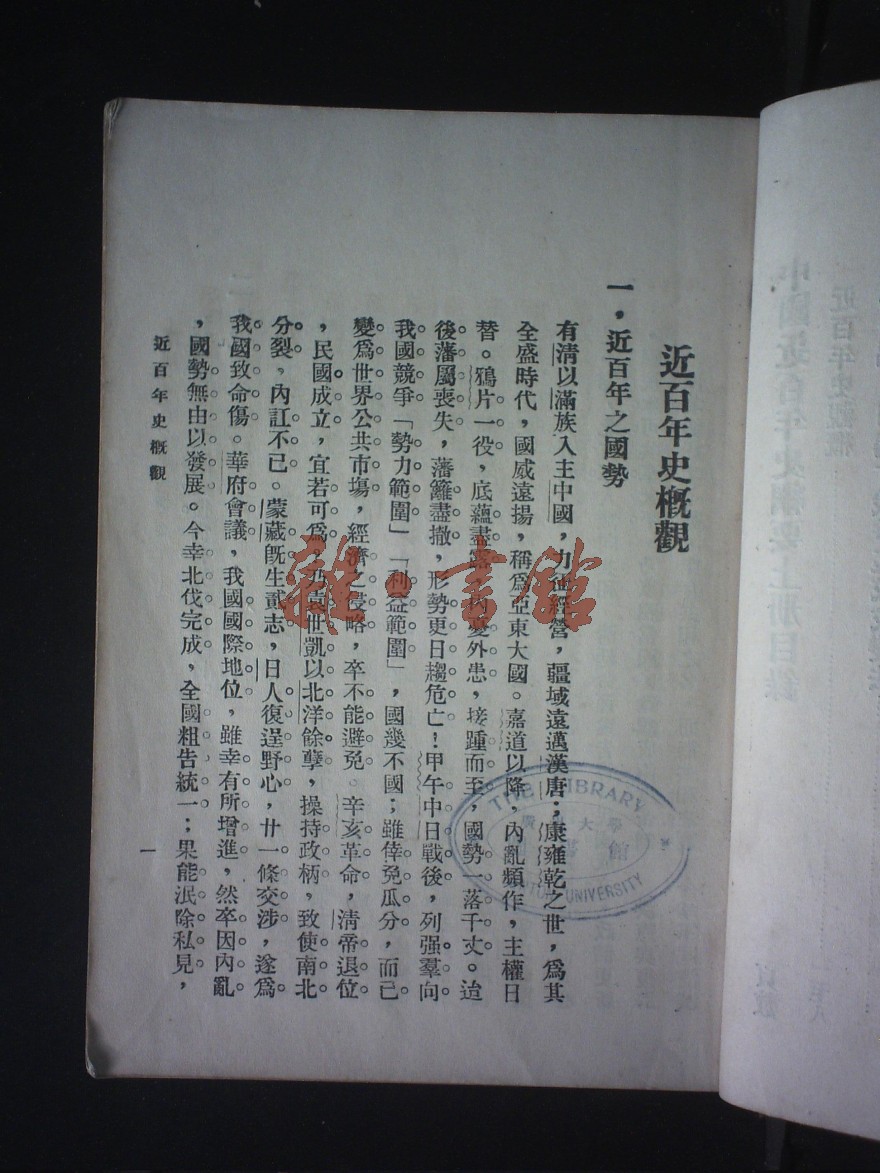 近百年史概觀
一，近百年之國勢
有清以滿族入主中國，力征經營，疆域遠邁漢唐；康雍乾之世，爲其
全盛時代，國威遠揚，稱爲亞東大國。嘉道以降，內亂頻作，主權日
替。鴉片一役，底蘊盡露，內憂外患，接踵而至，國勢一落千丈。迨
後藩屬喪失，藩籬盡撤，形勢更日趨危亡！甲午中日戰後，列强羣向
我國競爭「勢力範圍」「利益範圍」，國幾不國；雖倖免瓜分，而已
變爲世界公共市塲，經濟之侵略，卒不能避免。辛亥革命，清帝退位
，民國成立，宜若可爲，乃袁世凱以北洋餘孽，操持政柄，致使南北
分裂，內訌不已。蒙藏旣生貳志，日人復逞野心，廿一條交涉，遂爲
我國致命傷。華府會議，我國國際地位，雖幸有所增進，然卒因內亂
，國勢無由以發展。今幸北伐完成，全國粗告統一；果能泯除私見，
近百年史概觀
一
THE LIBRARY
大學
館
UNIVERSITY
龍〇書館